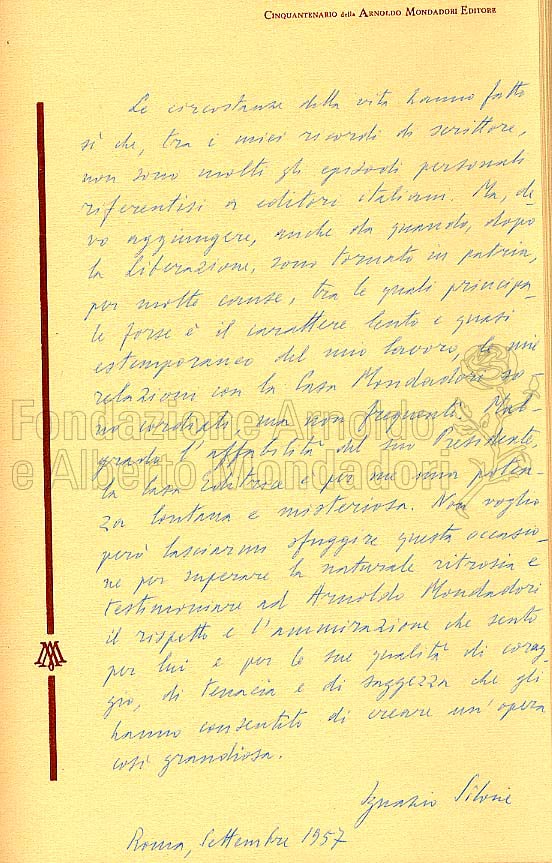 Cinquantenario della Arnoldo Mondadori Editore
Le circostanze della vita hanno fatto
sì che, tra i miei ricordi di scrittore,
non sono molti gli episodi personali
riferentisi a editori italiani. Ma, de-
vo aggiungere, anche da quando, dopo
la Liberazione, sono tornato in patria,
per molte cause, tra le quali principa-
le forse è il carattere lento e quasi
estemporaneo del mio lavoro, le mie
relazioni con la Casa Mondadori so-
no cordiali, ma non frequenti. Mal-
grado l'affabilità del suo Presidente,
la Casa Editrice è per me una poten-
za lontana e misteriosa. Non voglio
però lasciarmi sfuggire questa occasio-
ne per superare la naturale ritrosia e
testimoniare ad Arnoldo Mondadori
il rispetto e l'ammirazione che sento
per lui e per le sue qualità di corag-
gio, di tenacia e di saggezza che gli
hanno consentito di creare un'opera
così grandiosa.
Ignazio Silone
Roma, Settembre 1957
Fondazione Arnoldo
e Alberto Mondadori